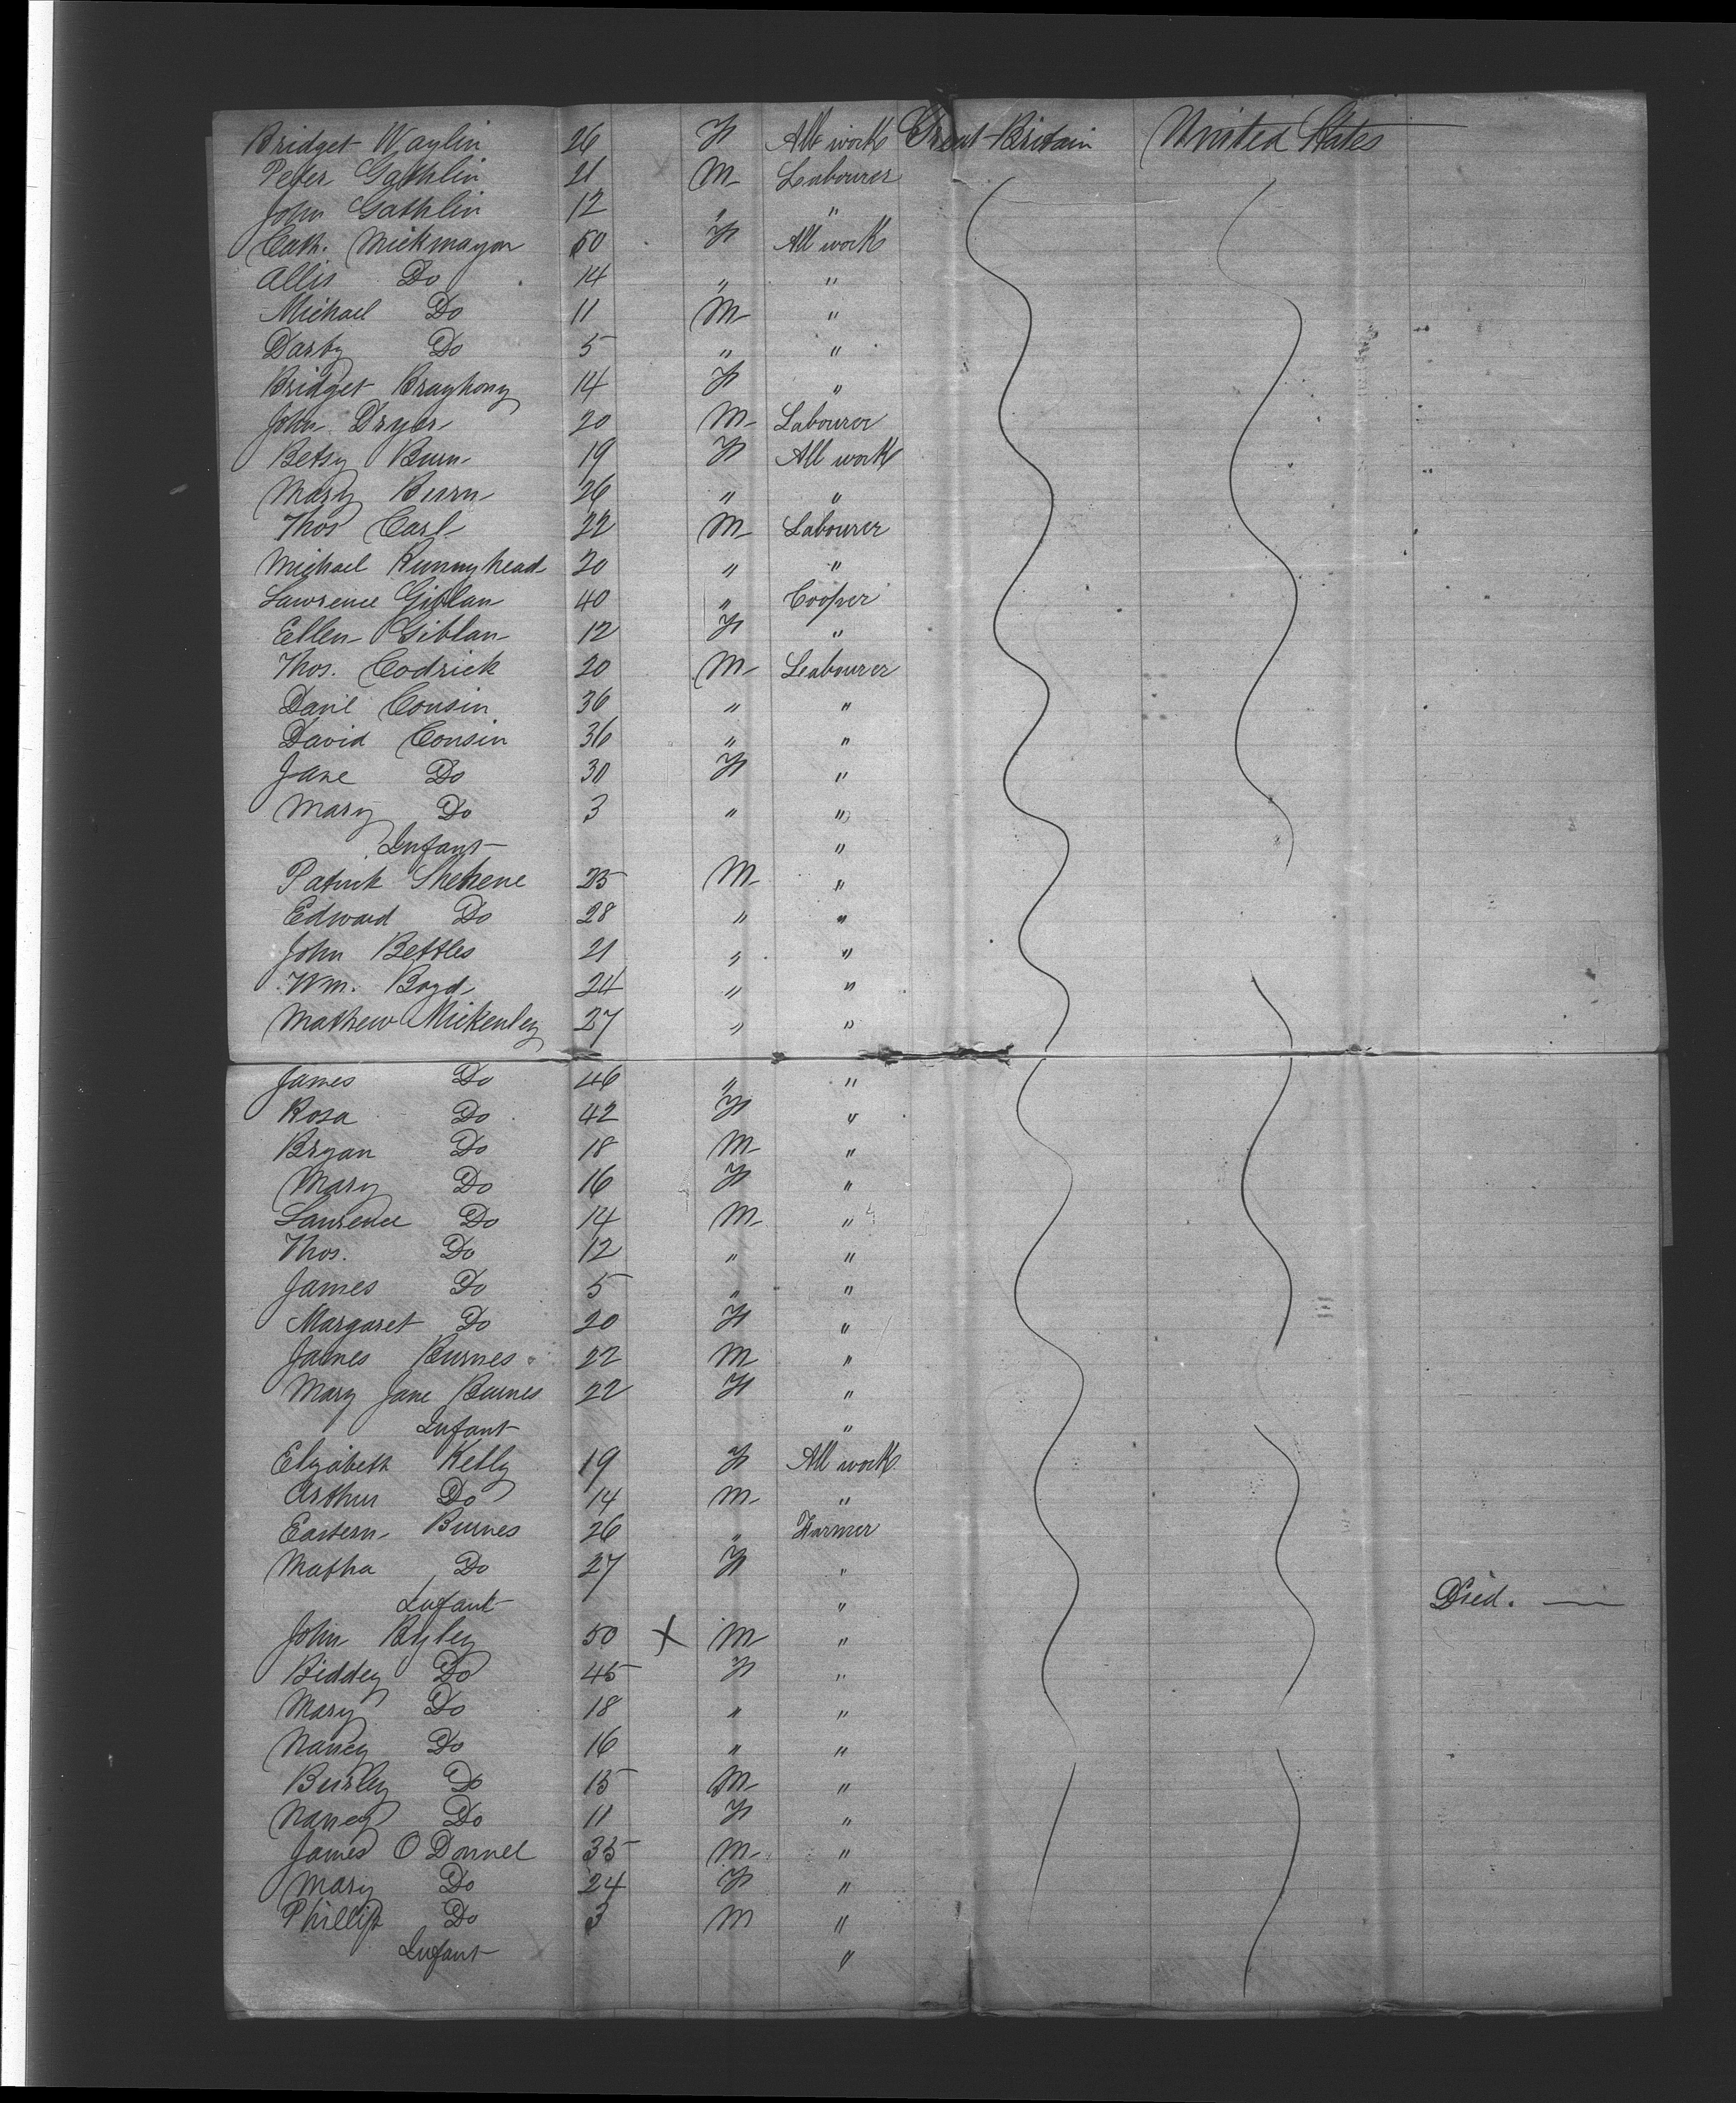 Bridget Waylin 26 F All work Great Britain United States
Peter Gathlin 21 M Labourer
John Gathlin 12 " "
Cath. Mickmayon 50 F All work
Allis Do 14 " "
Michael Do 11 M "
Darby Do 5 " "
Bridget Brayhony 14 F "
John Dryer 20 M Labourer
Betsy Burn 19 F All work
Mary Burn 26 " "
Thos Carl 22 M Labourer
Michael Kunnyhead 20 " "
Lawrence Giblan 40 " Cooper
Ellen Giblan 12 F "
Thos. Codrick 20 M Labourer
Danl Cousin 36 " "
David Cousin 36 " "
Jane Do 30 F "
Mary Do 3 " "
Infant "
Patrick Shehene 25 M "
Edward Do 28 " "
John Bettles 21 " "
Wm. Boyd 24 " "
Mathew Mickenley 27 " "
James Do 46 " "
Rosa Do 42 F "
Bryan Do 18 M "
Mary Do 16 F "
Laurence Do 14 M "
Thos. Do 12 " "
James Do 5 " "
Margaret Do 20 F "
James Burnes 22 M "
Mary Jane Burnes 22 F "
Infant "
Elizabeth Kelly 19 F All work
Arthur Do 14 M "
Eastern Burnes 26 " Farmer
Matha Do 27 F "
Infant " Died.
John Byley 50 X M "
Biddey Do 45 F "
Mary Do 18 " "
Nancy Do 16 " "
Burley Do 15 M "
Nancy Do 11 F "
James O Donnel 35 M "
Mary Do 24 F "
Phillip Do 3 M "
Infant "